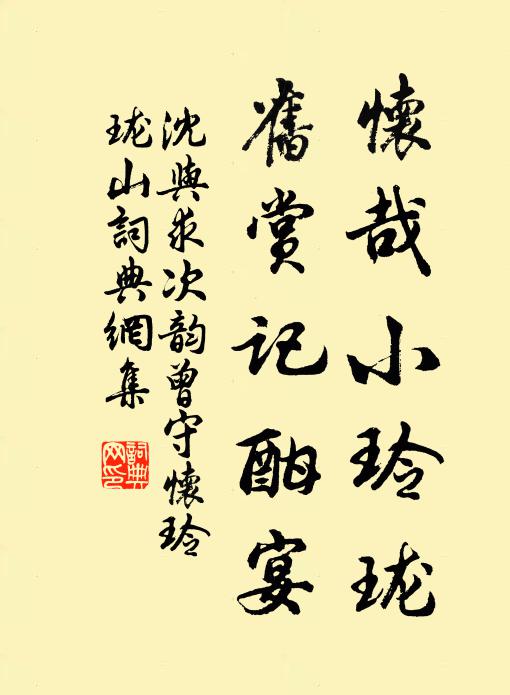 懷哉小玲瓏
舊賞記酣宴
沈與求次韵曾守懷玲
瓏山詞典網集
詞典网印